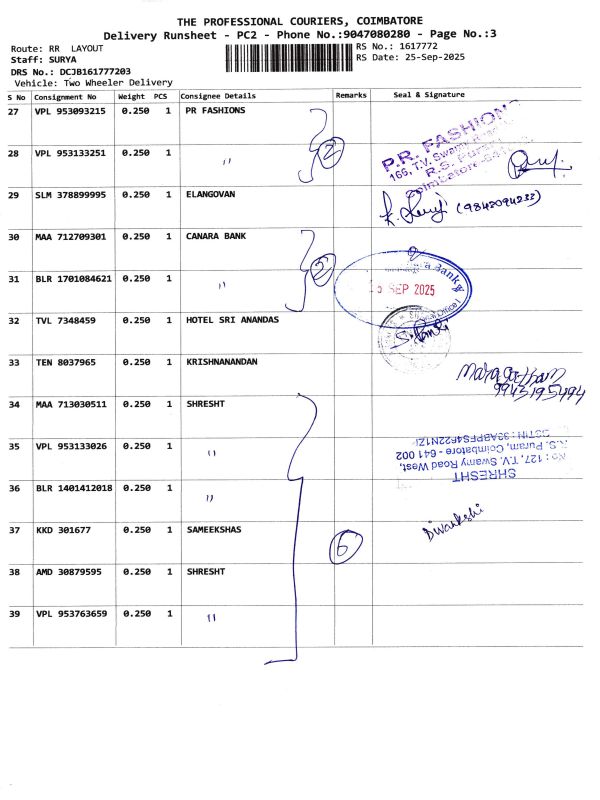 THE PROFESSIONAL COURIERS, COIMBATORE
Delivery Runsheet - PC2 - Phone No.:9047080280 - Page No.:3
Route: RR LAYOUT
RS No.: 1617772
Staff: SURYA
RS Date: 25-Sep-2025
DRS No.: DCJB161777203
Vehicle: Two Wheeler Delivery
S No Consignment No Weight PCS Consignee Details Remarks Seal & Signature
27 VPL 953093215 0.250 1 PR FASHIONS
28 VPL 953133251 0.250 1 "
2
P.R. FASHIONS
166, T.V. Swamy Road
R.S. Puram
Coimbatore
29 SLM 378899995 0.250 1 ELANGOVAN
(9842094233)
30 MAA 712709301 0.250 1 CANARA BANK
31 BLR 1701084621 0.250 1 "
2
Bank
SEP 2025
32 TVL 7348459 0.250 1 HOTEL SRI ANANDAS
33 TEN 8037965 0.250 1 KRISHNANANDAN
9943195494
34 MAA 713030511 0.250 1 SHRESHT
35 VPL 953133026 0.250 1 "
36 BLR 1401412018 0.250 1 "
SHRESHT
No : 127, T.V. Swamy Road West,
R.S. Puram, Coimbatore - 641 002
GSTIN : 33ABPFS4F22N1ZI
37 KKD 301677 0.250 1 SAMEEKSHAS
6
Diwakshi
38 AMD 30879595 0.250 1 SHRESHT
39 VPL 953763659 0.250 1 "